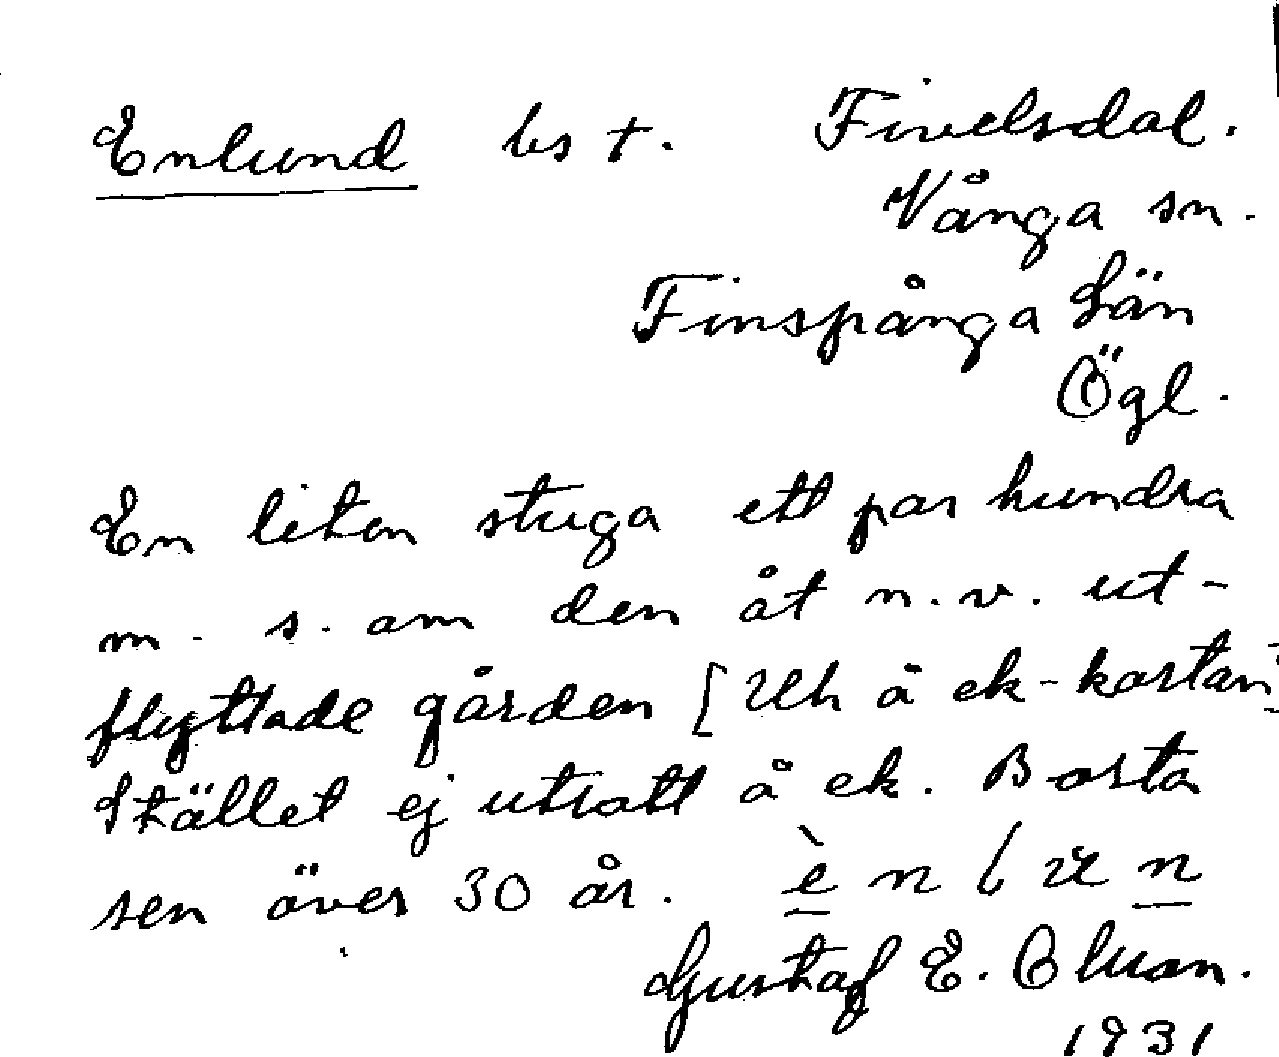 Enlund bs t. Fivelsdal.
Vånga sn.
Finspånga Län
Ögl.
En liten stuga ett par hundra
m. s. om den åt n.v. ut-
flyttade gården [Uh å ek-kartan]
Stället ej utsatt å ek. Borta
sen över 30 år. è n
Gustaf E. Oluan.
1931